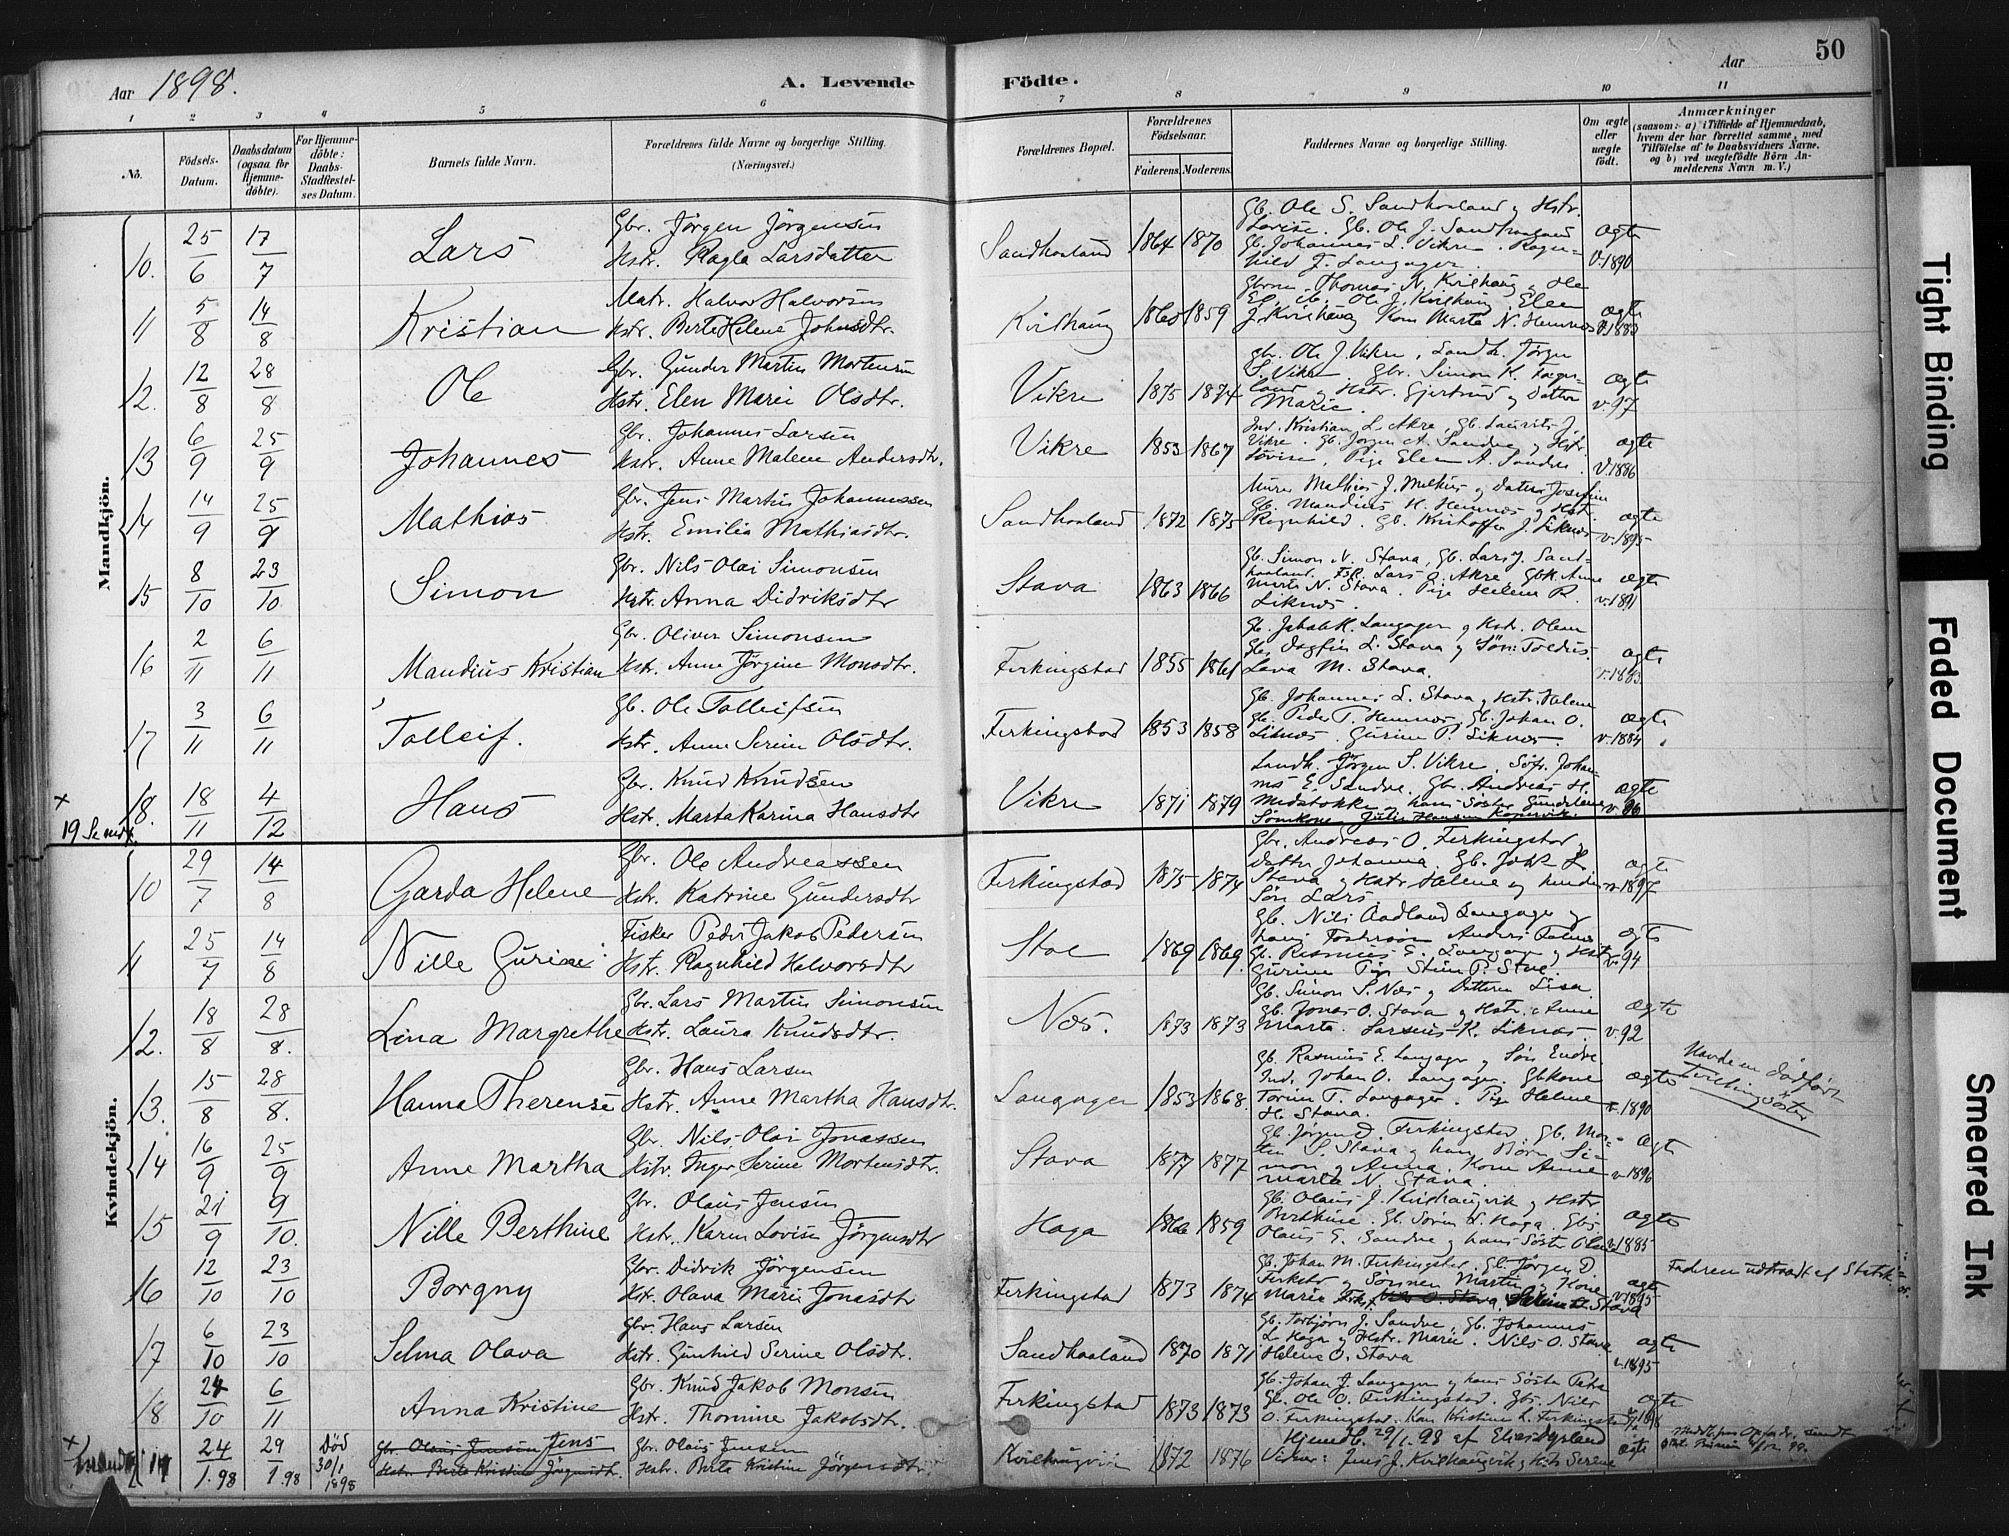 Aar 1898.
A. Levende Födte.
Aar
50
1 2 3 4 5 6 7 8 9 10 11
No.
Födsels-
Datum.
Daabsdatum
(ogsaa for
Hjemme-
döbte).
For Hjemme-
döbte:
Daabs-
Stadfæstel-
ses Datum.
Barnets fulde Navn.
Forældrenes fulde Navne og borgerlige Stilling.
(Næringsvei.)
Forældrenes Bopæl.
Forældrenes
Födselsaar.
Faderens. Moderens.
Faddernes Navne og borgerlige Stilling.
Om ægte
eller
uægte
födt.
Anmærkninger
(saasom: a) i Tilfælde af Hjemmedaab,
hvem der har forrettet samme, med
Tilföielse af to Daabsvidners Navne.
og b) ved uægtefödte Börn An-
melderens Navn m. V.)
Mandkjön.
10. 25/6 17/7 Lars
Gbr. Jörgen Jörgensen
Hstr. Ragla Larsdatter
Sandhaaland 1864 1870
Gb. Ole S. Sandhaaland og Hstr.
Lovise. Gb. Ole J. Sandhaaland
Gb. Johannes L. Vikre. Ragn-
hild J. Langager.
ægte
v. 1890
11 5/8 14/8 Kristian
Matr. Halvor Halvorsen
Hstr. Berte Helene Johnsdtr.
Kvilhaug 1860 1859
Thomas N. Kvilhaug
Ole J. Kvilhaug Elen
J. Kvilhaug Kone Marta N. Hemnes
ægte
v. 1883
12. 12/8 28/8 Ole
Gbr. Gunder Martin Mortensen
Hstr. Elen Marie Olsdtr.
Vikre 1875 1874
gbr. Ole J. Vikre, Landh. Jörgen
S. Vikre Gbr. Simon K.
og Hstr. Gjertrud og Datter
Marie.
ægte
v. 97
13 6/9 25/9 Johannes
Gbr. Johannes Larsen
Hstr. Anne Malene Andersdtr.
Vikre 1853 1867
Ind. Kristian L. Akre, Gb. Laurits J.
Vikre. Gb. Jörgen A. Sandve og Hstr.
Lovise, Pige Elen A. Sandve
ægte
v. 1886
14 14/9 25/9 Mathias
Gbr. Jens Martin Johannessen
Hstr. Emilie Mathiasdtr.
Sandhaaland 1872 1875
Murer Mathias J. og Datter Josefine
Gb. Mandius H. Hemnes og Hstr.
Ragnhild. Gb. Kristoffer J. Liknes
ægte
v. 1895
15 8/10 23/10 Simon
Gbr. Nils Olai Simonsen
Hstr. Anna Didriksdtr
Stava 1863 1866
Gb. Simon N. Stava, Gb. Lars J. Sand-
haaland. Lars O. Akre Gbk. Anne
Marta N. Stava. Pige Helene R.
Liknes.
ægte
v. 1891
16 2/11 6/11 Mandius Kristian
Gbr. Oliver Simonsen
Hstr. Anne Jörgine Monsdtr.
Ferkingstad 1855 1861
Gb. Jakob K. Langager og Hstr. Olene
Gb. Dagfin L. Stava og Sön
Lava M. Stava.
ægte
v. 1883
17 3/11 6/11 Tolleif.
Gb. Ole Tolleifsen
Hstr. Anne Serine Olsdtr.
Ferkingstad 1853 1858
Gb. Johannes L. Stava og Hstr. Helene
Gb. Peder T. Hemnes, Gb. Johan O.
Liknes. Gurine P. Liknes.
ægte
v. 1884
x
18. 18/11 4/12 Hans
Gbr. Knud Knudsen
Hstr. Marta Karina Hansdtr
Vikre 1871 1879
Landh. Jörgen S. Vikre, Söfr. Johan-
nes E. Sandve, Gbr. Andreas H.
Medstokke og hans Söster
ægte
v. 96
19
Kvindekjön.
10 29/7 14/8 Garda Helene
Gbr. Ole Andreassen
Hstr Katrine Gundersdtr
Ferkingstad 1875 1874
Gbr. Andreas O. Ferkingstad
Datter Johanna. Gb. L.
Stava og Hstr Helene og hendes
Sön Lars
ægte
v. 1897
11 25/7 14/8 Nille Gurine
Fisker Peder Jakob Pedersen
Hstr. Ragnhild Halvorsdtr
Stol 1869 1869.
Gb. Nils Aadland Langager og
hans Anders
Gb. Rasmus E. Langager og Hstr
Gurine
ægte
v. 94
12. 18/8 28/8. Lina Margrethe
Gbr. Lars Martin Simonsen
Hstr. Laura Knudsdtr.
Nes. 1873 1873
Gb. Simon S. Nes og Datteren Lisa
Gb. Jonas O. Stava og Hstr. Anne
Marta. Larsine K. Liknes.
ægte
v. 92
13. 15/8 28/8. Hanna Therense
Gbr. Hans Larsen
Hstr. Anne Martha Hansdtr.
Langager 1853 1868.
Gb. Rasmus E. Langager og Sön Endre
Ind. Johan O. Langager. Gbkone
Torine T. Langager. Pige Helene
H. Stava.
ægte
v. 1890
Havde en dödfört
Tvillingsöster
14 16/9 25/9 Anne Martha
Gbr. Nils Olai Jonassen
Hstr. Inger Serine Mortensdtr.
Stava 1877 1877
Gb. Jörgen D. Ferkingstad, Gb. Mor-
ten S. Stava og hans Börn Si-
mon og Anna. Kone Anne
Marta N. Stava.
ægte
v. 1896
15 21/9 9/10. Nille Berthine
Gbr. Olaus Jensen
Hstr. Karen Lovise Jörgensdtr
Haga 1866 1859
Gb. Olaus J. Kvilhaugvik og Hstr
Berthine. Gb. Sören H. Haga. Gbs
Olaus E. Sandve og hans Söster
ægte
v. 1885
16 12/10 23/10 Borgny
Gbr. Didrik Jörgensen
Hstr. Olava Marie Jonasdtr
Ferkingstad 1873 1874
Gb. Johan M. Ferkingstad. Gb. Jörgen D
Ferkstd og Sönnen Martin og Kone
Marie Stava
ægte
v. 1895
Faderen udtraadt af Statsk
17 6/10 23/10 Selma Olava
Gbr. Hans Larsen
Hstr. Gunhild Serine Olsdtr.
Sandhaaland 1870 1871
Gb. Torbjörn J. Sandve, Gb. Johannes
L. Haga og Hstr. Marie. Nils O. Stava
Helene O. Stava
ægte
v. 1895
18 24/10 6/11 Anna Kristine
Gbr. Knud Jakob Monsen
Hstr. Thomine Jakobsdtr.
Ferkingstad 1873 1873
Gb. Johan J. Langager og hans Söster
Gb. Ole O. Ferkingstad. Gbs. Nils
O. Ferkingstad. Kone Kristine L. Ferkingstad
ægte
x
19 24/1.98 29/1.98 Död 30/1 1898
Gbr. Olaus Jensen Jens
Hstr. Berta Kristine Jörgensdtr.
Gbr. Olaus Jensen
Hstr. Berta Kristine Jörgensdtr
Kvilhaugvik 1872 1876
Hjemdb. 29/1.98 af
Vidner: Jens J. Kvilhaugvik og Hstr Serine
ægte
Tight Binding
Faded Document
Smeared Ink